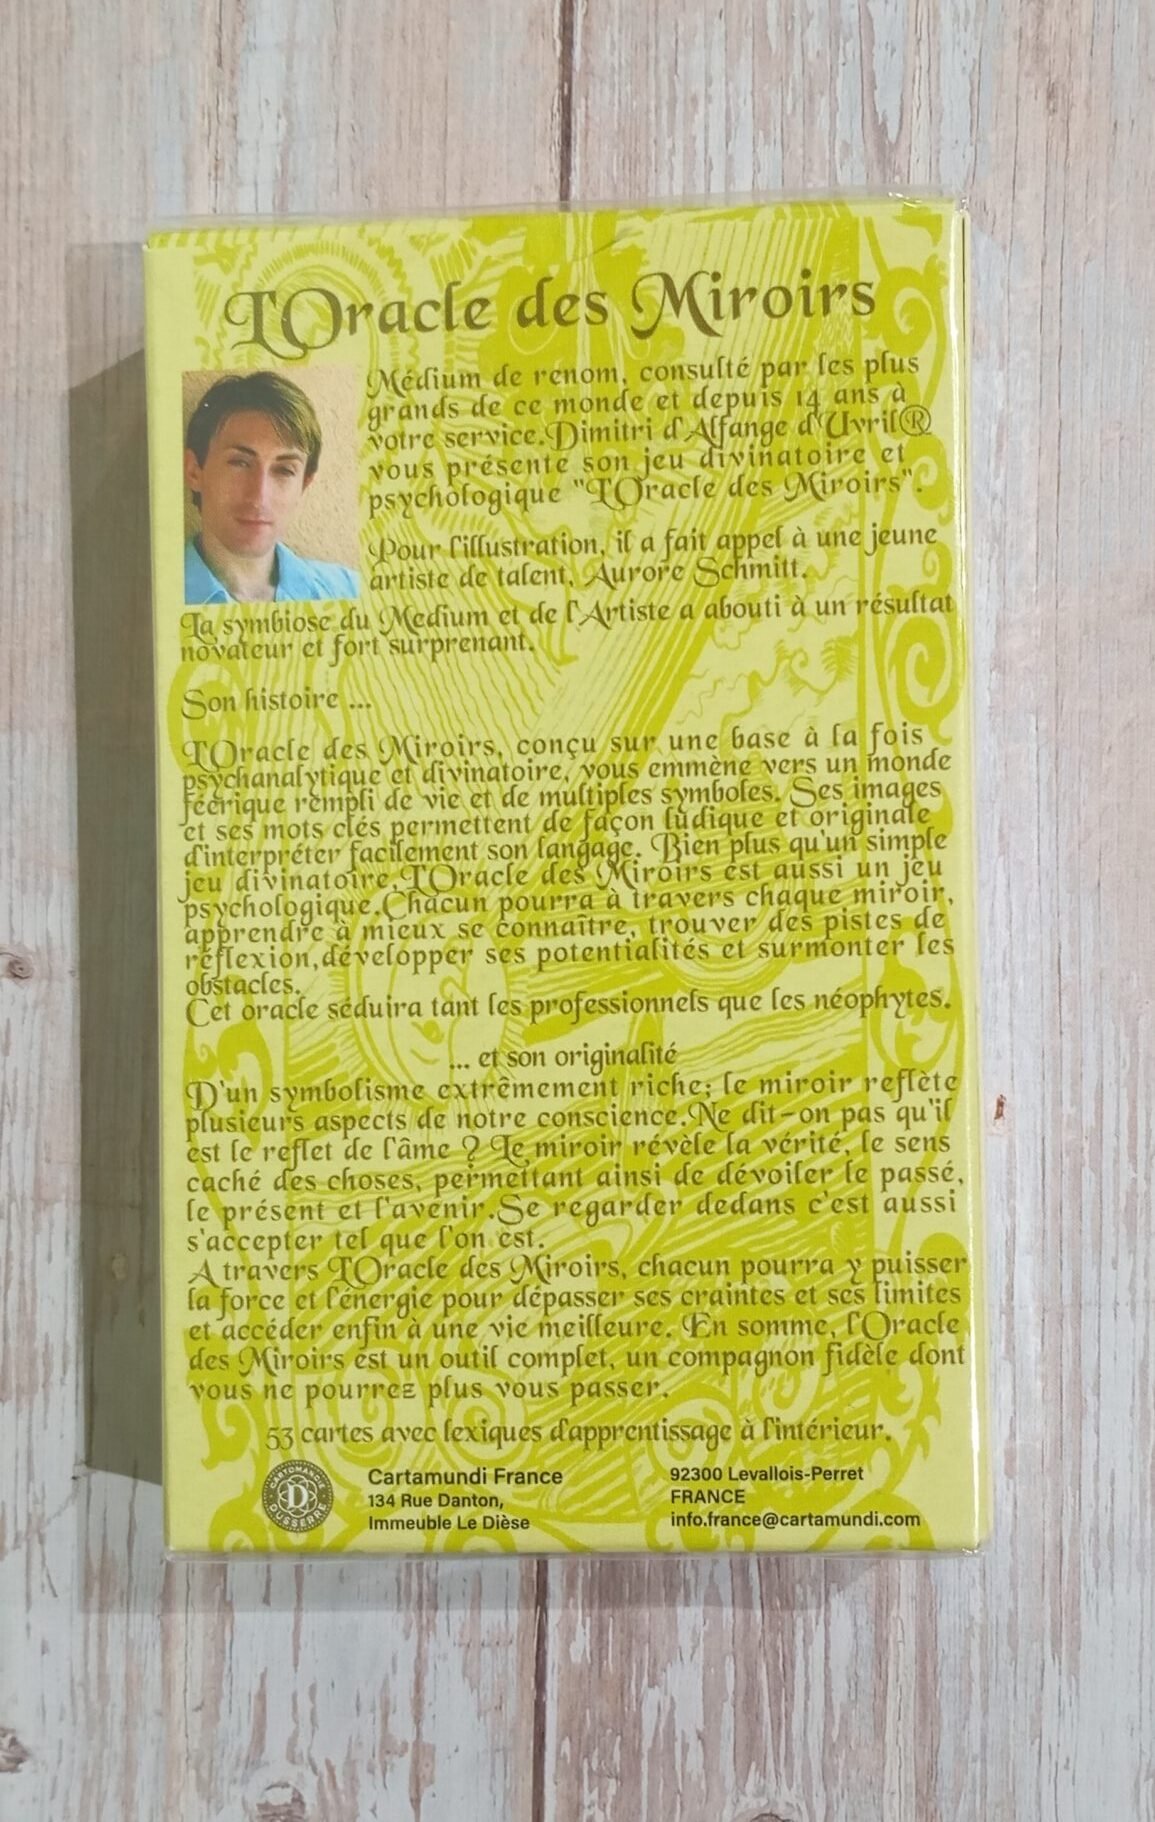 L'Oracle des Miroirs
Médium de renom, consulté par les plus
grands de ce monde et depuis 14 ans à
votre service.Dimitri d'Alfange d'Uvril®
vous présente son jeu divinatoire et
psychologique "L'Oracle des Miroirs".
Pour l'illustration, il a fait appel à une jeune
artiste de talent, Aurore Schmitt.
La symbiose du Medium et de l'Artiste a abouti à un résultat
novateur et fort surprenant.
Son histoire ...
L'Oracle des Miroirs, conçu sur une base à la fois
psychanalytique et divinatoire, vous emmène vers un monde
féérique rempli de vie et de multiples symboles. Ses images
et ses mots clés permettent de façon ludique et originale
d'interpréter facilement son langage. Bien plus qu'un simple
jeu divinatoire,L'Oracle des Miroirs est aussi un jeu
psychologique.Chacun pourra à travers chaque miroir,
apprendre à mieux se connaître, trouver des pistes de
réflexion,développer ses potentialités et surmonter les
obstacles.
Cet oracle séduira tant les professionnels que les néophytes.
... et son originalité
D'un symbolisme extrêmement riche; le miroir reflète
plusieurs aspects de notre conscience.Ne dit-on pas qu'il
est le reflet de l'âme ? Le miroir révèle la vérité, le sens
caché des choses, permettant ainsi de dévoiler le passé,
le présent et l'avenir.Se regarder dedans c'est aussi
s'accepter tel que l'on est.
A travers L'Oracle des Miroirs, chacun pourra y puisser
la force et l'énergie pour dépasser ses craintes et ses limites
et accéder enfin à une vie meilleure. En somme, l'Oracle
des Miroirs est un outil complet, un compagnon fidèle dont
vous ne pourrez plus vous passer.
53 cartes avec lexiques d'apprentissage à l'intérieur.
CARTOMANCIE
D
DUSSERRE
Cartamundi France
134 Rue Danton,
Immeuble Le Dièse
92300 Levallois-Perret
FRANCE
info.france@cartamundi.com